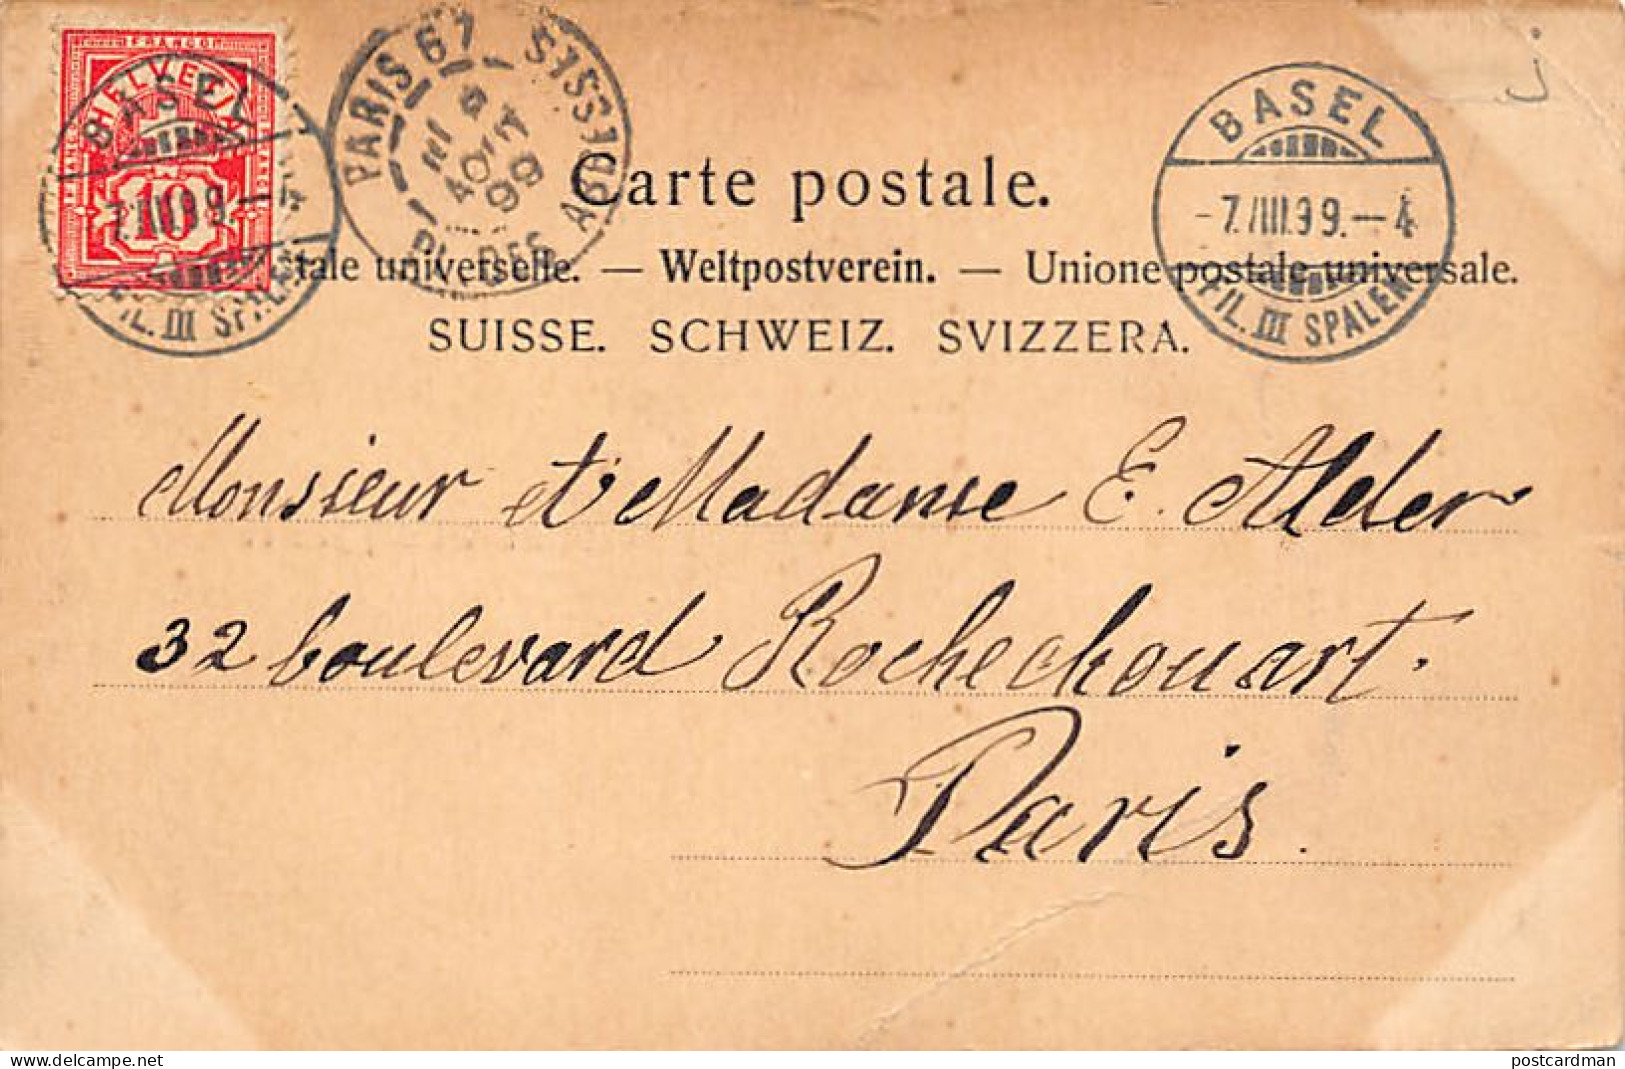 FRANCO
HELVETIA
10
BASEL
7.III.99.-4
FIL. III SPALEN
PARIS 67
PL. DES ABBESSES
AOUT
99
BASEL
-7.VIII.99.-4
FIL. III SPALEN
Carte postale.
tale universelle. — Weltpostverein. — Unione postale universale.
SUISSE. SCHWEIZ. SVIZZERA.
Monsieur et Madame E. Alder
32 boulevard Rochechouart.
Paris.
postcardman